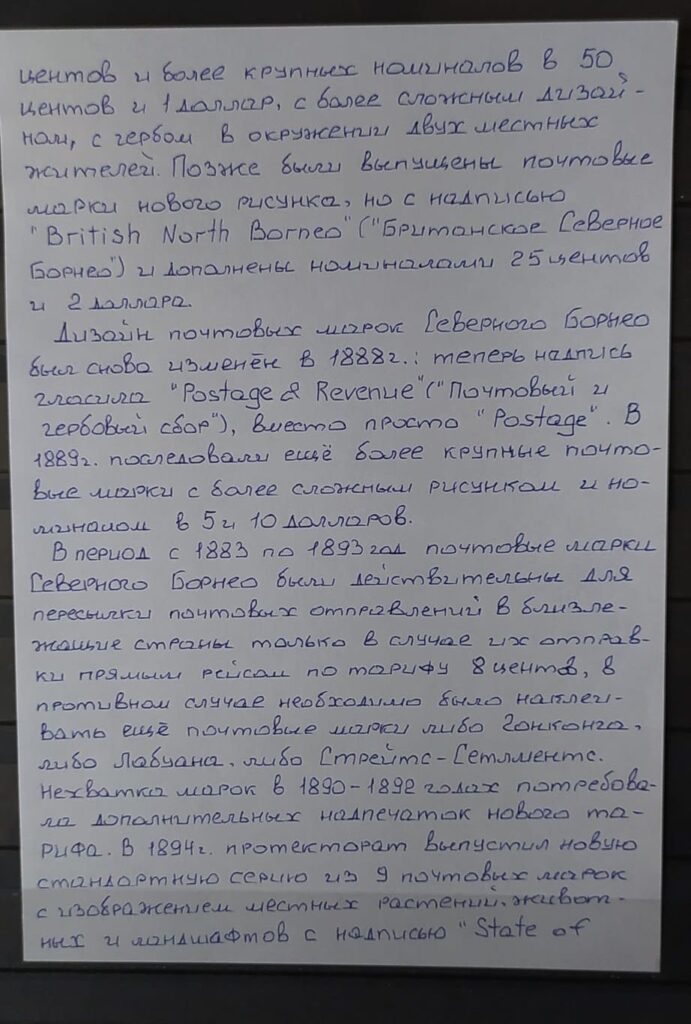 центов и более крупных номиналов в 50
центов и 1 доллар, с более сложным дизай-
ном, с гербом в окружении двух местных
жителей. Позже были выпущены почтовые
марки нового рисунка, но с надписью
"British North Borneo" ("Британское Северное
Борнео") и дополнены номиналами 25 центов
и 2 доллара.
Дизайн почтовых марок Северного Борнео
был снова изменён в 1888г.: теперь надпись
гласила "Postage & Revenue" ("Почтовый и
гербовый сбор"), вместо просто "Postage". В
1889г. последовали ещё более крупные почто-
вые марки с более сложным рисунком и но-
миналом в 5 и 10 долларов.
В период с 1883 по 1893 год почтовые марки
Северного Борнео были действительны для
пересылки почтовых отправлений в близле-
жащие страны только в случае их отправ-
ки прямым рейсом по тарифу 8 центов, в
противном случае необходимо было наклеи-
вать ещё почтовые марки либо Гонконга,
либо Лабуана, либо Стрейтс-Сетлментс.
Нехватка марок в 1890-1892 годах потребова-
ла дополнительных надпечаток нового та-
рифа. В 1894г. протекторат выпустил новую
стандартную серию из 9 почтовых марок
с изображением местных растений, живот-
ных и ландшафтов с надписью "State of